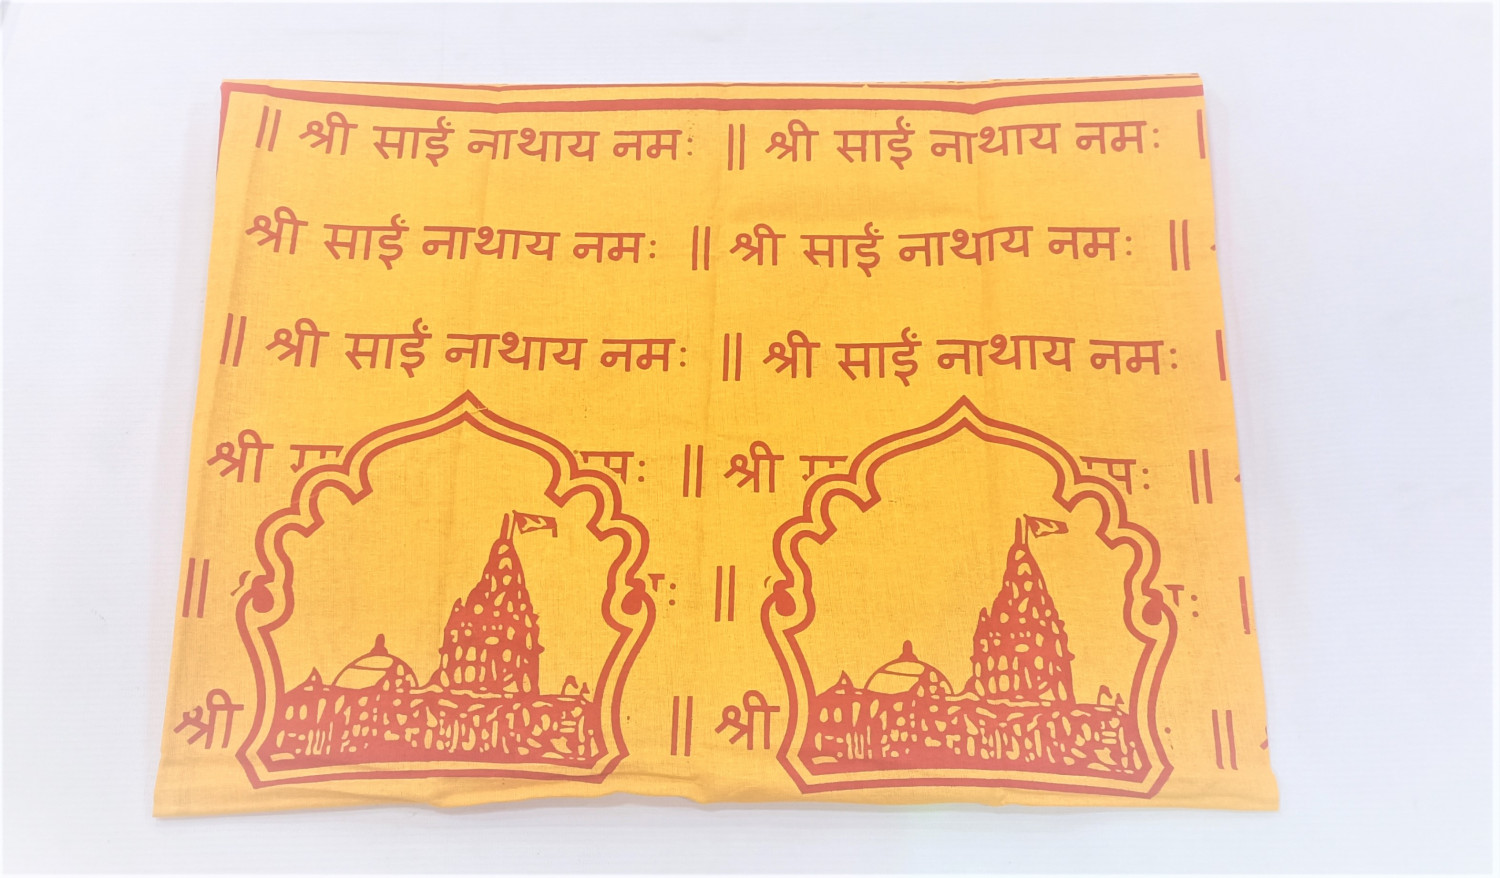 || श्री साईं नाथाय नमः || श्री साईं नाथाय नमः |
श्री साईं नाथाय नमः || श्री साईं नाथाय नमः ||
|| श्री साईं नाथाय नमः || श्री साईं नाथाय नमः |
श्री || श्री ||
|| || |
श्री || श्री ||